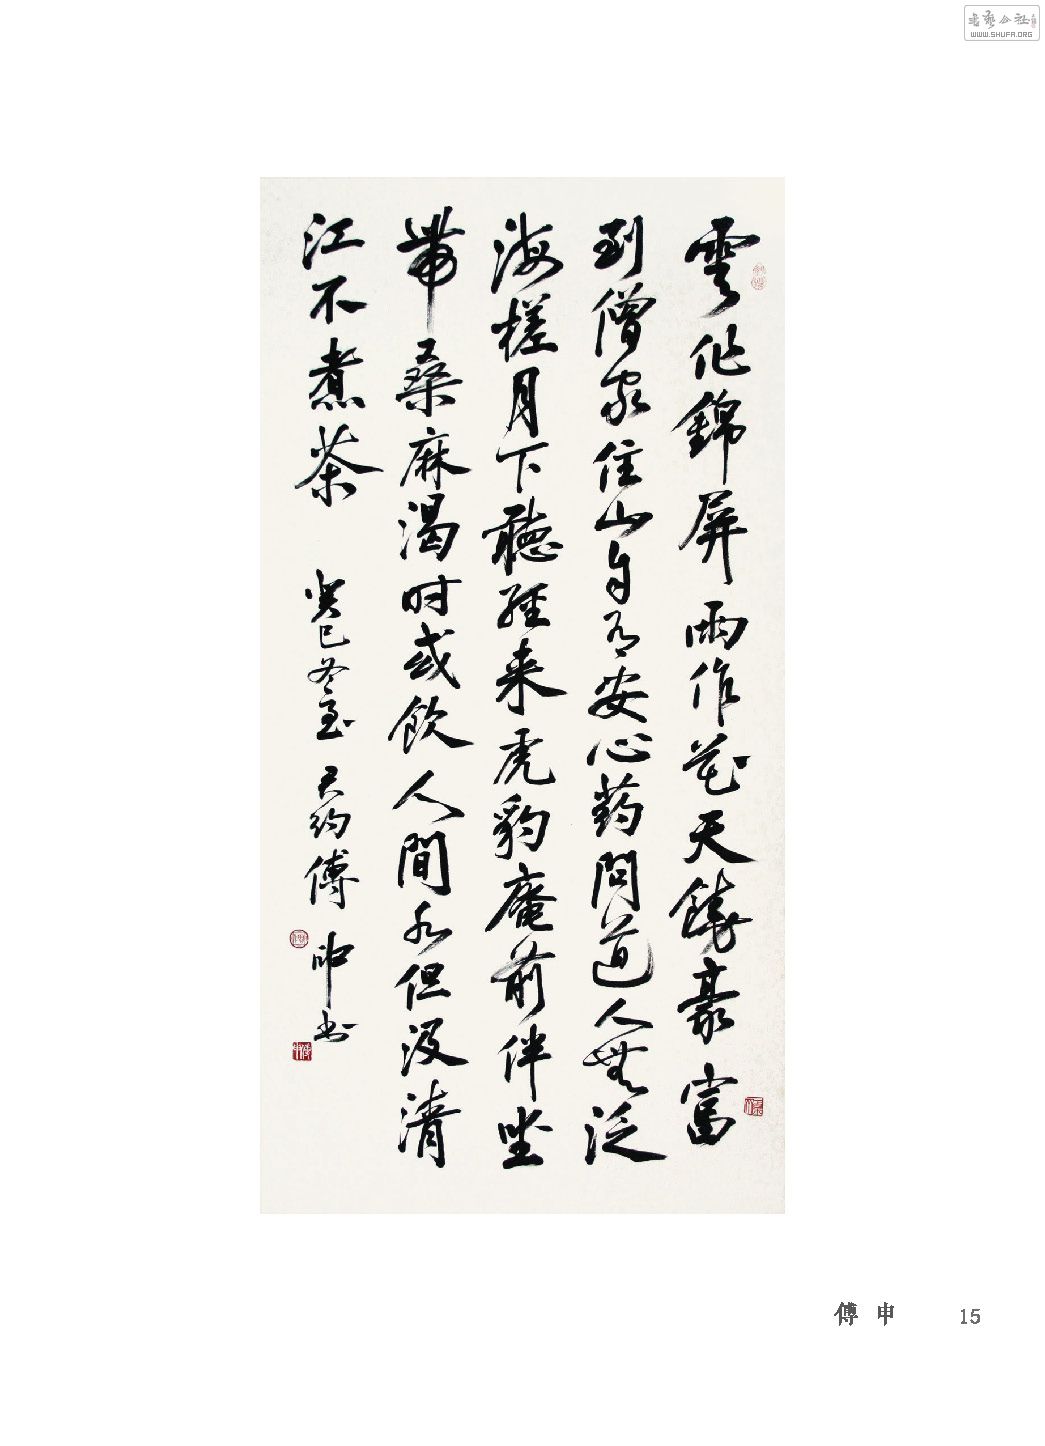 書藝公社
WWW.SHUFA.ORG
雲作錦屏雨作花天饒豪富
到僧家住山自有安心藥問道人無泛
海槎月下聽經来虎豹庵前伴坐
帶桑麻渴时或飲人間水但汲清
江不煮茶 癸巳冬至 君約傅申书
傅申 15